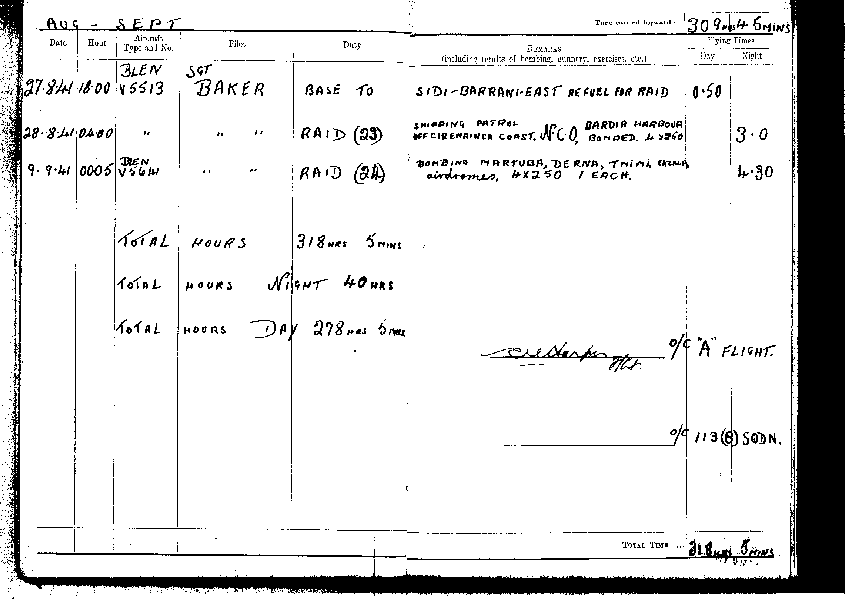 AUG - SEPT
Time carried forward:- 309 HRS 45 MINS
Date Hour Aircraft Type and No. Pilot Duty REMARKS (including results of bombing, gunnery, exercises, etc.) Flying Times Day Night
27·8·41 18·00 BLEN V5513 SGT BAKER BASE TO SIDI-BARRANI-EAST REFUEL FOR RAID 0·50
28·8·41 0400 " " " RAID (23) SHIPPING PATROL COAST. N.C.O, BARDIA HARBOUR BOMBED. 4 x 250 3·0
9·9·41 0005 BLEN " " RAID (24) BOMBING MARTUBA, DERNA, TMIMI, airdromes, 4X250 1 EACH. 4·30
TOTAL HOURS 318 HRS 5 MINS
TOTAL HOURS NIGHT 40 HRS
TOTAL HOURS DAY 278 HRS 5 MINS
O/C "A" FLIGHT.
O/C 113 (B) SQDN.
TOTAL TIME ... 318 HRS 5 MINS